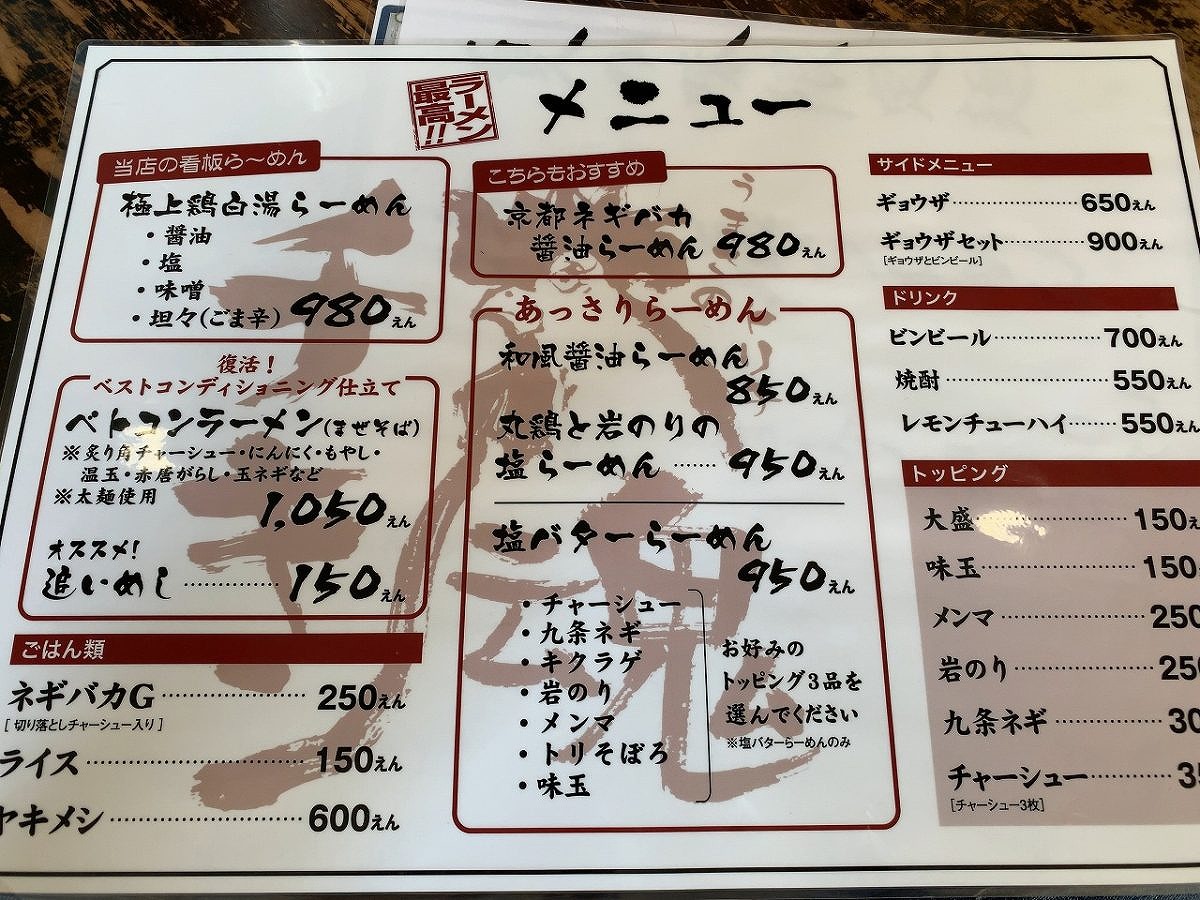 ラーメン
最高!!
メニュー
当店の看板ら〜めん
極上鶏白湯らーめん
・醤油
・塩
・味噌
・坦々(ごま辛) 980えん
復活!
ベストコンディショニング仕立て
ベトコンラーメン(まぜそば)
※炙り角チャーシュー・にんにく・もやし・
温玉・赤唐がらし・玉ネギなど
※太麺使用
1,050えん
オススメ!
追いめし 150えん
ごはん類
ネギバカG 250えん
[切り落としチャーシュー入り]
ライス 150えん
ヤキメシ 600えん
こちらもおすすめ
京都ネギバカ
醤油らーめん 980えん
あっさりらーめん
和風醤油らーめん
850えん
丸鶏と岩のりの
塩らーめん 950えん
塩バターらーめん
950えん
・チャーシュー
・九条ネギ
・キクラゲ
・岩のり
・メンマ
・トリそぼろ
・味玉
お好みの
トッピング3品を
選んでください
※塩バターらーめんのみ
サイドメニュー
ギョウザ 650えん
ギョウザセット 900えん
[ギョウザとビンビール]
ドリンク
ビンビール 700えん
焼酎 550えん
レモンチューハイ 550えん
トッピング
大盛 150え
味玉 150
メンマ 250
岩のり 25
九条ネギ 30
チャーシュー 3
[チャーシュー3枚]